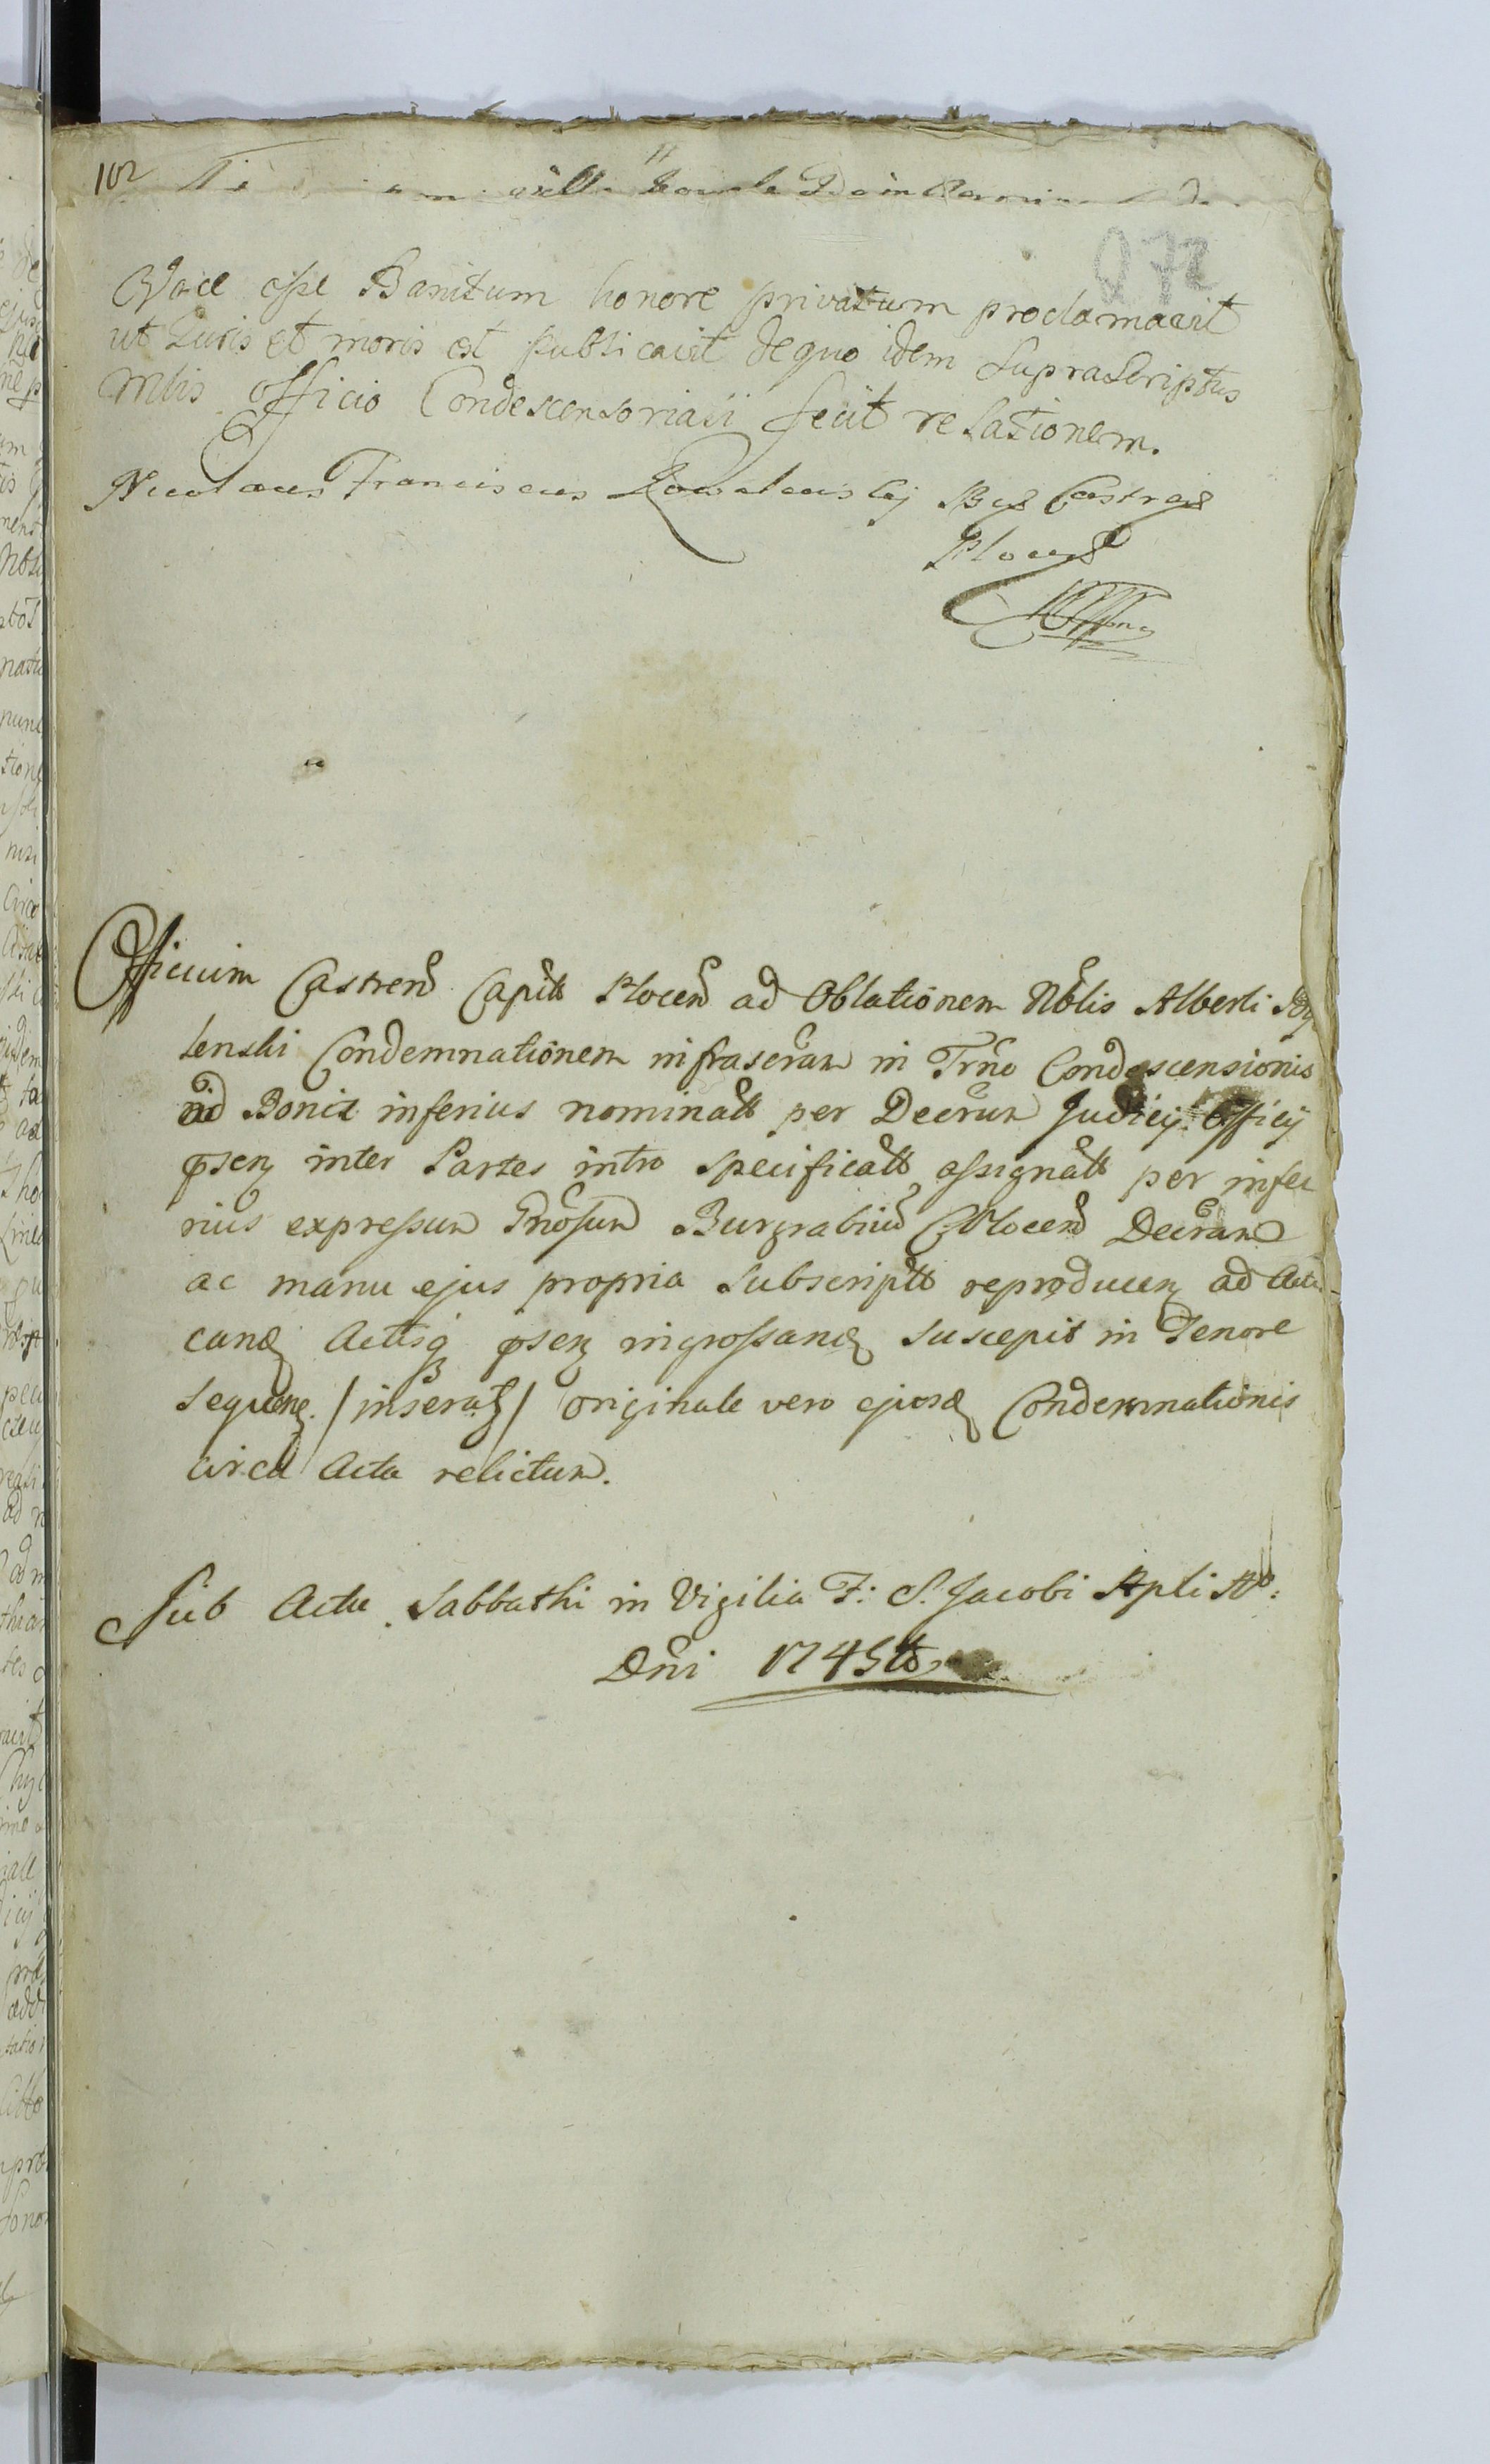 102
272
Voce esse Banitum honore privatum proclamavit
ut Iuris et moris est publicavit de quo idem Suprascriptus
Mlis officio Condescensoriali fecit relationem.
Nicolaus Franciscus Bgs Castrens
Plocens
Officium Castren Capitt Plocen ad Oblationem Nobilis Alberti
lenski Condemnationem infrascram in Trno Condescensionis
ad Bona inferius nominatt per Decrum Judicij Officij
psen inter Partes intro specificatt assignatt per infe
rius expressum Gnosum Burgrabium Plocen Decram
ac manu ejus propria subscriptt reproducen ad acti
cand Actisq psen ingrossand suscepit in Tenore
sequen. / inserat / originale vero ejusd Condemnationis
circa Acta relictum.
Sub Actu Sabbathi in Vigilia F: S. Jacobi Apli Ao:
Dni 1745to